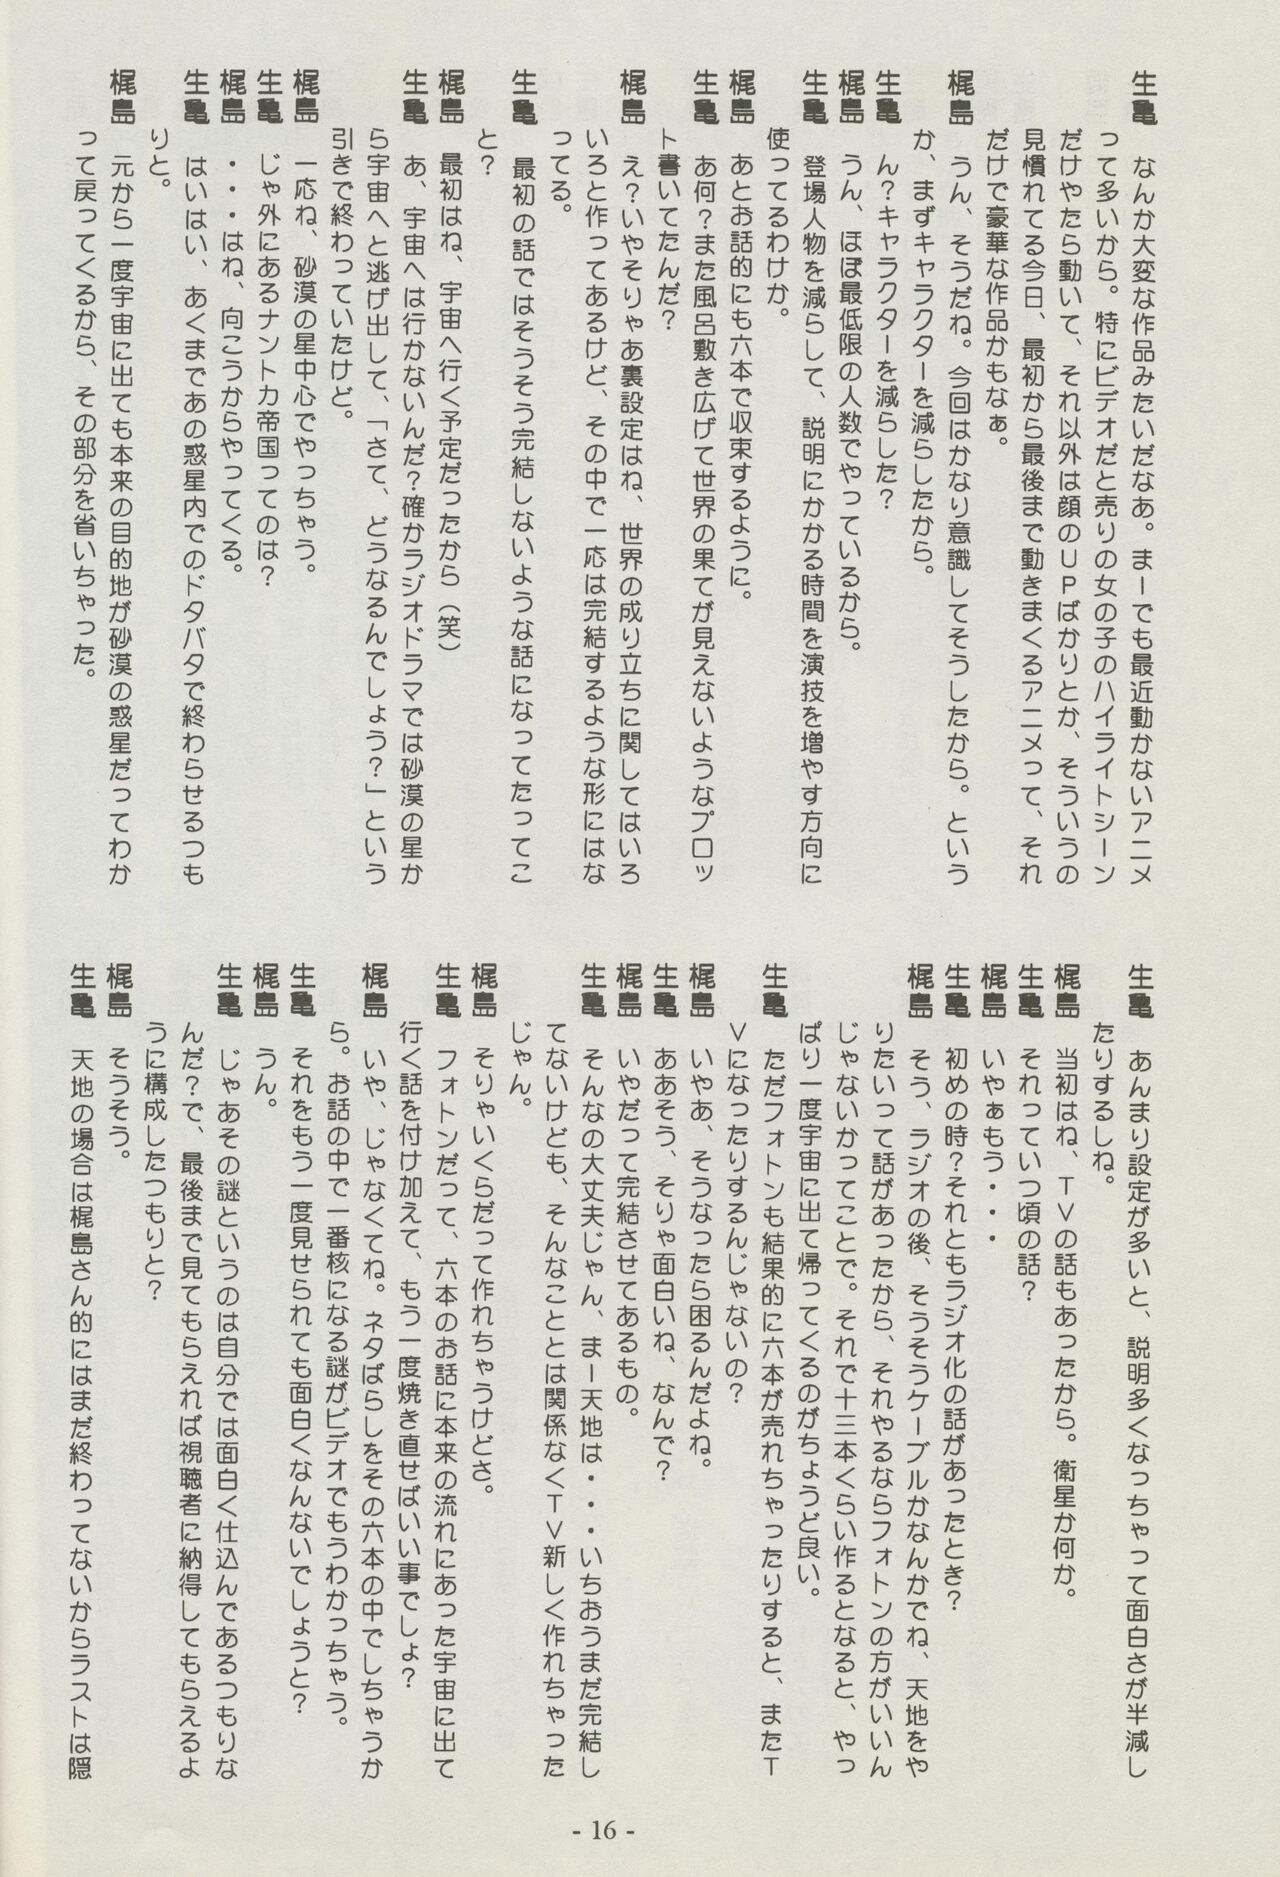 生亀　なんか大変な作品みたいだなあ。まーでも最近動かないアニメ
って多いから。特にビデオだと売りの女の子のハイライトシーン
だけやたら動いて、それ以外は顔のUPばかりとか、そういうの
見慣れてる今日、最初から最後まで動きまくるアニメって、それ
だけで豪華な作品かもなぁ。
梶島　うん、そうだね。今回はかなり意識してそうしたから。という
か、まずキャラクターを減らしたから。
生亀　ん？キャラクターを減らした？
梶島　うん、ほぼ最低限の人数でやっているから。
生亀　登場人物を減らして、説明にかかる時間を演技を増やす方向に
使ってるわけか。
梶島　あとお話的にも六本で収束するように。
生亀　あ何？また風呂敷き広げて世界の果てが見えないようなプロッ
ト書いてたんだ？
梶島　え？いやそりゃあ裏設定はね、世界の成り立ちに関してはいろ
いろと作ってあるけど、その中で一応は完結するような形にはな
ってる。
生亀　最初の話ではそうそう完結しないような話になってたってこ
と？
梶島　最初はね、宇宙へ行く予定だったから（笑）
生亀　あ、宇宙へは行かないんだ？確かラジオドラマでは砂漠の星か
ら宇宙へと逃げ出して、「さて、どうなるんでしょう？」という
引きで終わっていたけど。
梶島　一応ね、砂漠の星中心でやっちゃう。
生亀　じゃ外にあるナントカ帝国ってのは？
梶島　・・・はね、向こうからやってくる。
生亀　はいはい、あくまであの惑星内でのドタバタで終わらせるつも
りと。
梶島　元から一度宇宙に出ても本来の目的地が砂漠の惑星だってわか
って戻ってくるから、その部分を省いちゃった。
生亀　あんまり設定が多いと、説明多くなっちゃって面白さが半減し
たりするしね。
梶島　当初はね、TVの話もあったから。衛星か何か。
生亀　それっていつ頃の話？
梶島　いやぁもう・・・
生亀　初めの時？それともラジオ化の話があったとき？
梶島　そう、ラジオの後、そうそうケーブルかなんかでね、天地をや
りたいって話があったから、それやるならフォトンの方がいいん
じゃないかってことで。それで十三本くらい作るとなると、やっ
ぱり一度宇宙に出て帰ってくるのがちょうど良い。
生亀　ただフォトンも結果的に六本が売れちゃったりすると、またT
Vになったりするんじゃないの？
梶島　いやあ、そうなったら困るんだよね。
生亀　ああそう、そりゃ面白いね、なんで？
梶島　いやだって完結させてあるもの。
生亀　そんなの大丈夫じゃん、まー天地は・・・いちおうまだ完結し
てないけども、そんなこととは関係なくTV新しく作れちゃった
じゃん。
梶島　そりゃいくらだって作れちゃうけどさ。
生亀　フォトンだって、六本のお話に本来の流れにあった宇宙に出て
行く話を付け加えて、もう一度焼き直せばいい事でしょ？
梶島　いや、じゃなくてね。ネタばらしをその六本の中でしちゃうか
ら。お話の中で一番核になる謎がビデオでもうわかっちゃう。
生亀　それをもう一度見せられても面白くなんないでしょうと？
梶島　うん。
生亀　じゃあその謎というのは自分では面白く仕込んであるつもりな
んだ？で、最後まで見てもらえれば視聴者に納得してもらえるよ
うに構成したつもりと？
梶島　そうそう。
生亀　天地の場合は梶島さん的にはまだ終わってないからラストは隠
- 16 -